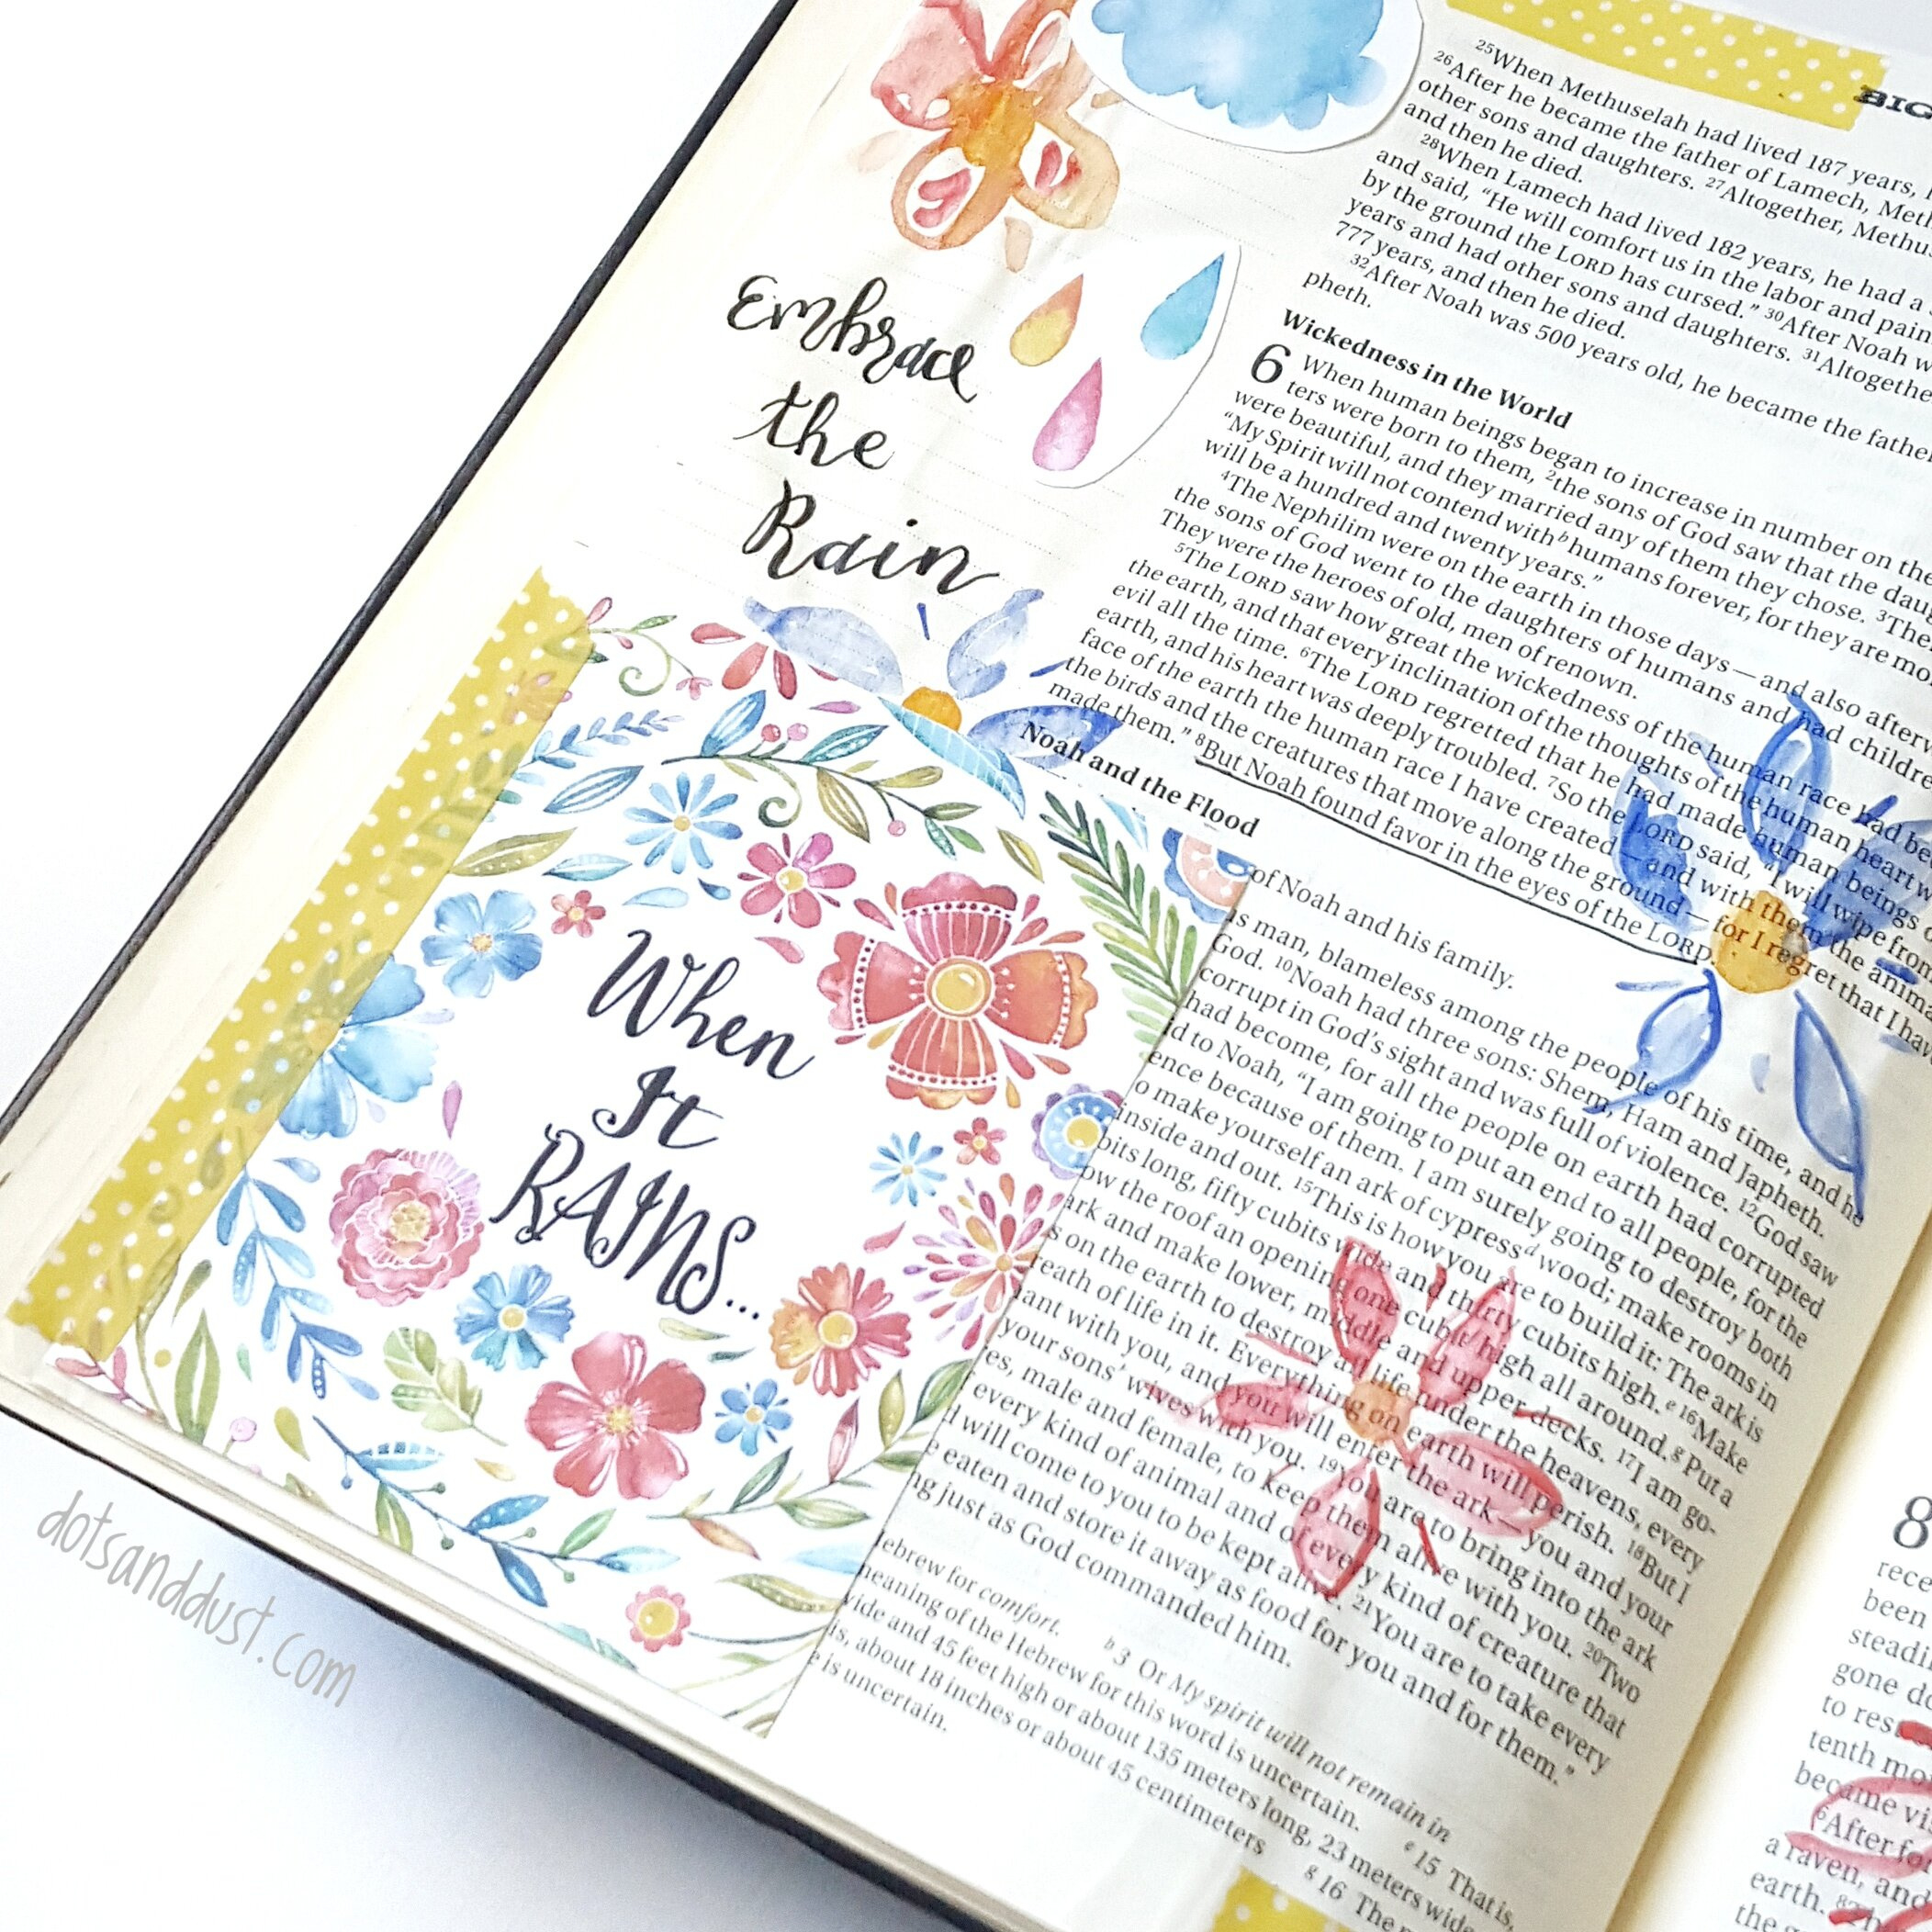 BIG
25When Methuselah had lived 187 years,
26After he became the father of Lamech,
other sons and daughters. 27Altogether,
and then he died.
28When Lamech had lived 182 years, he had a
and said, "He will comfort us in the labor and pain
by the ground the LORD has cursed." 30After Noah
years and had other sons and daughters. 31
777 years, and then he died.
32After Noah was 500 years old, he became the
pheth.
Wickedness in the World
6 When human beings began to increase in number on the
ters were born to them, 2the sons of God saw that the
were beautiful, and they married any of them they chose. 3
"My Spirit will not contend with b humans forever, for they are
will be a hundred and twenty years."
4The Nephilim were on the earth in those days—and also
the sons of God went to the daughters of humans and had
They were the heroes of old, men of renown.
5The LORD saw how great the wickedness of the human race had
the earth, and that every inclination of the thoughts of the human heart
evil all the time. 6The LORD regretted that he had made human beings
earth, and his heart was deeply troubled. 7So the LORD said, "I will wipe from
face of the earth the human race I have created—and with them the
the birds and the creatures that move along the ground—for I regret that I
made them." 8But Noah found favor in the eyes of the LORD
Noah and the Flood
of Noah and his family.
man, blameless among the people of his time, and he
God. 10Noah had three sons: Shem, Ham and Japheth.
corrupt in God's sight and was full of violence. 12God saw
had become, for all the people on earth had corrupted
to Noah, "I am going to put an end to all people, for the
because of them. I am surely going to destroy both
make yourself an ark of cypress d wood; make rooms in
inside and out. 15This is how you are to build it: The ark is
long, fifty cubits wide and thirty cubits high. e 16Make
the roof an opening one cubit high all around. g Put a
ark and make lower, middle and upper decks. 17I am go-
on the earth to destroy all life under the heavens, every
of life in it. Everything on earth will perish. 18But I
with you, and you will enter the ark—you and your
your sons' wives with you. 19You are to bring into the ark
male and female, to keep them alive with you. 20Two
every kind of animal and of every kind of creature that
will come to you to be kept alive. 21You are to take every
eaten and store it away as food for you and for them."
just as God commanded him.
for comfort. b 3 Or My spirit will not remain in
meaning of the Hebrew for this word is uncertain.
and 45 feet high or about 135 meters long, 23 meters wide
about 18 inches or about 45 centimeters
is uncertain.
e 15 That is,
g 16 The
Embrace
the
Rain
When
It
RAINS...
dotsanddust.com
8
been
gone
tenth
became
6After
a raven, and
earth.